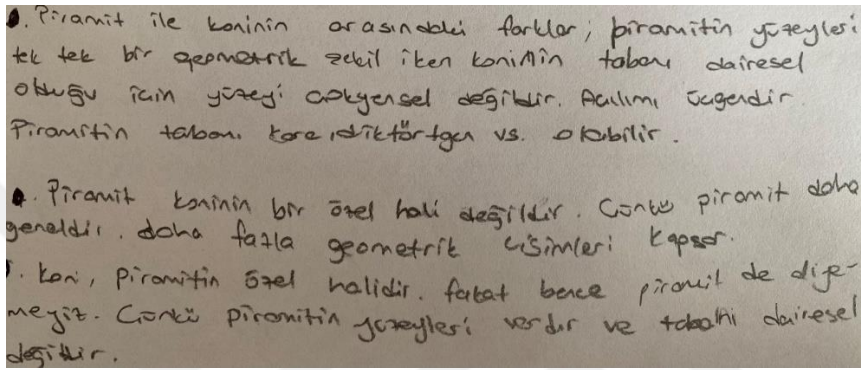 . Piramit ile koninin arasındaki farklar; piramitin yüzeyleri
tek tek bir geometrik şekil iken koninin tabanı dairesel
olduğu için yüzeyi çokgensel değildir. Açılımı üçgendir.
Piramitin tabanı kare, diktörtgen vs. olabilir.
. Piramit koninin bir özel hali değildir. Çünkü piramit daha
geneldir. daha fazla geometrik cisimleri kapsar.
. koni, piramitin özel halidir. fakat bence piramit de diye-
meyiz. Çünkü piramitin yüzeyleri vardır ve tabanı dairesel
değildir.